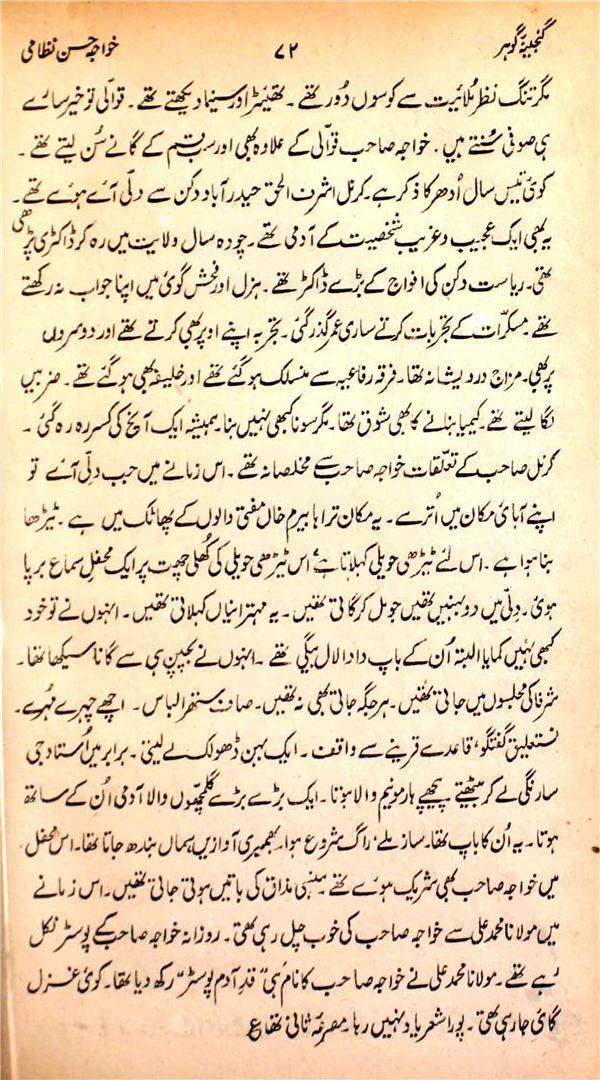 گنجینۂ گوہر ۷۲ خواجہ حسن نظامی
مگر تنگ نظر مُلائیت سے کوسوں دُور تھے ۔ تھیئٹر اور سنیما دیکھتے تھے ۔ قوالی تو خیر سارے
ہی صوفی سُنتے ہیں ۔ خواجہ صاحب قوّالی کے علاوہ بھی اور سب قسم کے گانے سُن لیتے تھے ۔
کوئی تیس سال اُدھر کا ذکر ہے۔ کرنل اشرف الحق حیدرآباد دکن سے دلّی آئے ہوئے تھے ۔
یہ بھی ایک عجیب و غریب شخصیت کے آدمی تھے ۔ چودہ سال ولایت میں رہ کر ڈاکٹری پڑھی
تھی۔ ریاست دکن کی افواج کے بڑے ڈاکٹر تھے ۔ ہزل اور فحش گوئی میں اپنا جواب نہ رکھتے
تھے ۔ مسکرات کے تجربات کرتے ساری عمر گذر گئی ۔ تجربہ اپنے اوپر بھی کرتے تھے اور دوسروں
پر بھی۔ مزاج درویشانہ تھا۔ فرقہ رفاعیہ سے منسلک ہو گئے تھے اور خلیفہ بھی ہو گئے تھے ۔ ضربیں
لگا لیتے تھے۔ کیمیا بنانے کا بھی شوق تھا۔ مگر سونا کبھی نہیں بنا۔ ہمیشہ ایک آنچ کی کسر رہ رہ گئی ۔
کرنل صاحب کے تعلّقات خواجہ صاحب سے مخلصانہ تھے ۔ اس زمانے میں جب دلّی آئے تو
اپنے آبائی مکان میں اُترے ۔ یہ مکان تراہا بیرم خاں مفتی والوں کے پھاٹک میں ہے ۔ ٹیڑھا
بنا ہوا ہے ۔ اس لئے ٹیڑھی حویلی کہلاتا ہے‘ اس ٹیڑھی حویلی کی کُھلی چھت پر ایک محفلِ سماع برپا
ہوئی ۔ دلّی میں دو بہنیں تھیں جو مل کر گاتی تھیں ۔ یہ مہترانیاں کہلاتی تھیں ۔ انہوں نے تو خود
کبھی نہیں کمایا البتہ اُن کے باپ دادا لال بیگی تھے ۔ انہوں نے بچپن ہی سے گانا سیکھا تھا ۔
شرفا کی مجلسوں میں جاتی تھیں ۔ ہر جگہ جاتی بھی نہ تھیں۔ صاف ستھرا لباس ۔ اچھے چہرے مُہرے ۔
نستعلیق گفتگو‘ قاعدے قرینے سے واقف ۔ ایک بہن ڈھولک لے لیتی ۔ برابر میں اُستاد جی
سارنگی لے کر بیٹھتے پیچھے ہارمونیم والا ہوتا ۔ ایک بڑے بڑے گلمچھوں والا آدمی اُن کے ساتھ
ہوتا ۔ یہ اُن کا باپ تھا۔ ساز ملے‘ راگ شروع ہوا۔ گھمبیری آوازیں سماں بندھ جاتا تھا۔ اس محفل
میں خواجہ صاحب بھی شریک ہوئے تھے ہنسی مذاق کی باتیں ہوتی جاتی تھیں ۔ اس زمانے
میں مولانا محمد علی سے خواجہ صاحب کی خوب چل رہی تھی ۔ روزانہ خواجہ صاحب کے پوسٹر نکل
رہے تھے ۔ مولانا محمد علی نے خواجہ صاحب کا نام ہی ”قدِ آدم پوسٹر“ رکھ دیا تھا ۔ کوئی غزل
گائی جا رہی تھی ۔ پورا شعر یاد نہیں رہا۔ مصرعہ ثانی تھا ع